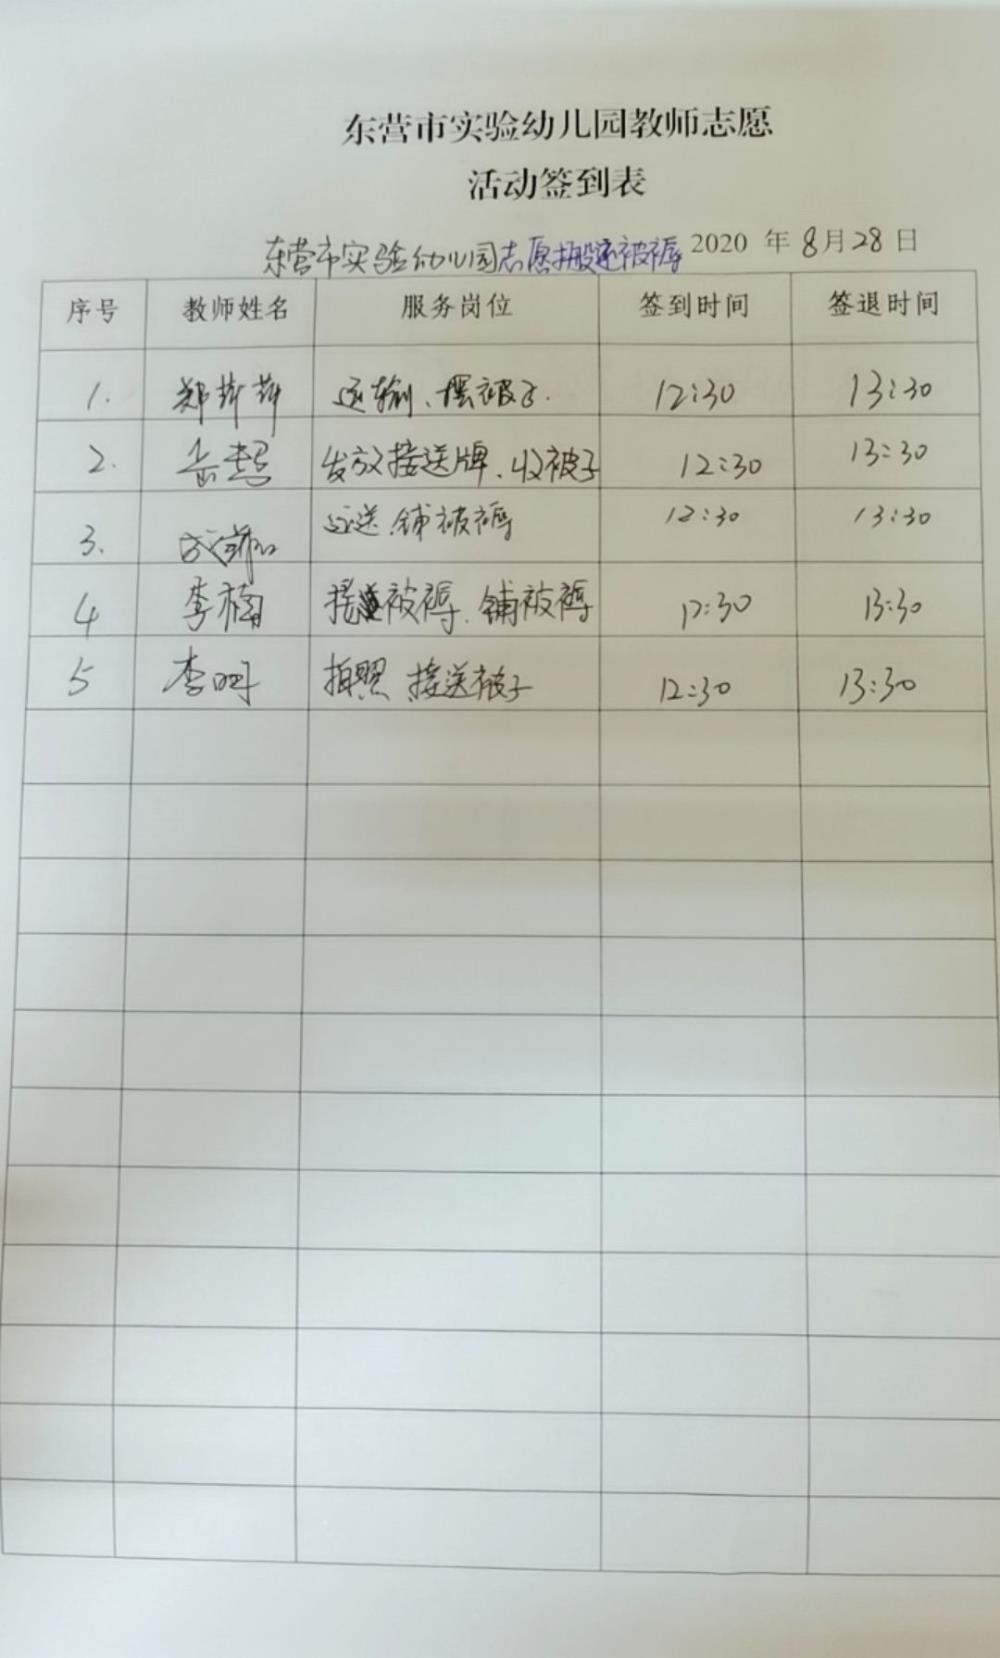 东营市实验幼儿园教师志愿
活动签到表
东营市实验幼儿园志愿搬运被褥 2020 年 8月28日
序号 教师姓名 服务岗位 签到时间 签退时间
1. 郑莉莉 运输、摆被子. 12:30 13:30
2. 岳 发放接送牌、收被子 12:30 13:30
3. 运送.铺被褥 12:30 13:30
4 李楠 被褥.铺被褥 12:30 13:30
5 李明 拍照 接送被子 12:30 13:30